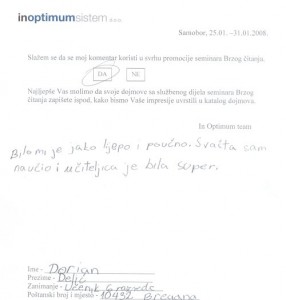 inoptimumsistem d.o.o.
Samobor, 25.01. –31.01.2008.
Slažem se da se moj komentar koristi u svrhu promocije seminara Brzog čitanja.
DA NE
Najljepše Vas molimo da svoje dojmova sa službenog dijele seminara Brzog
čitanja zapišete ispod, kako bismo Vaše impresije uvrstili u katalog dojmova.
In Optimum team
Bilo mi je jako lijepo i poučno. Svašta sam
naučio i učiteljica je bila super.
Ime - Dorian
Prezime - Delić
Zanimanje - Učenik 6 razreda
Poštanski broj i mjesto - 10432 Bregana